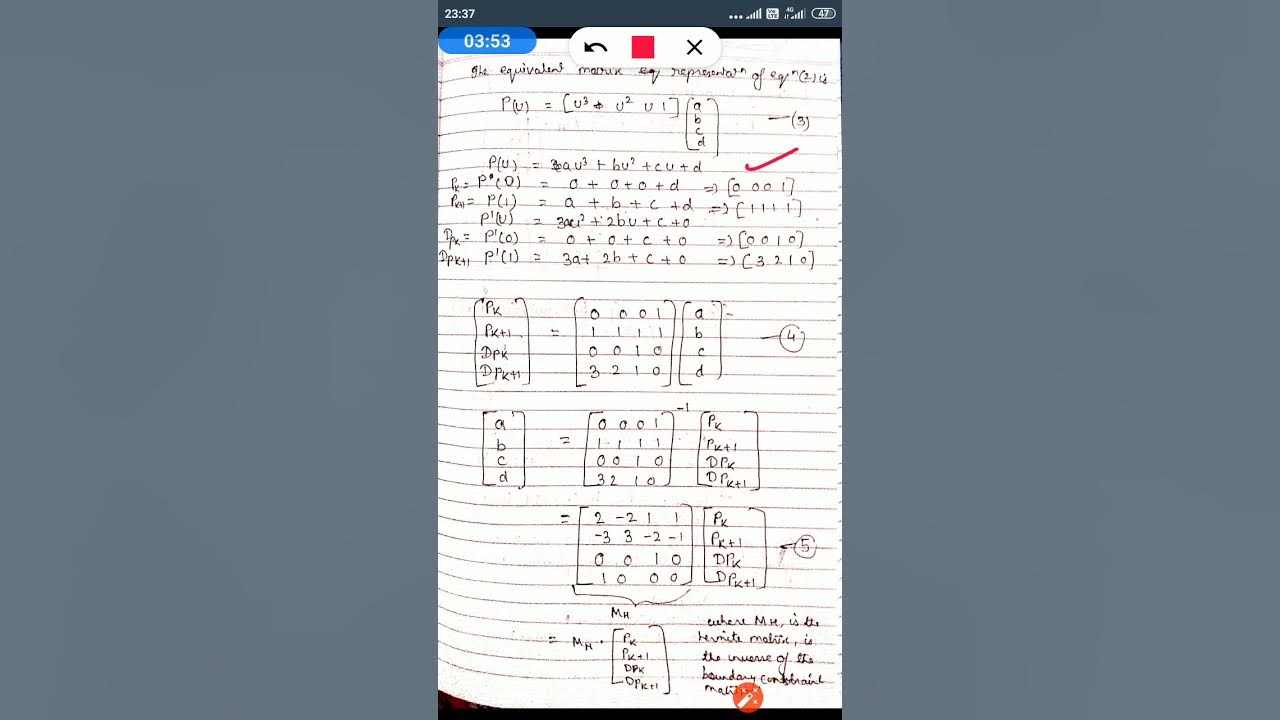 23:37
4G 47
03:53
The equivalent matrix eqn representatn of eqn(2) is
P(u) = [u³ u² u 1] [a b c d] —(3)
P(u) = au³ + bu² + cu + d
PK = P(0) = 0 + 0 + 0 + d => [0 0 0 1]
PK+1 = P(1) = a + b + c + d => [1 1 1 1]
P'(u) = 3au² + 2bu + c + 0
DPK = P'(0) = 0 + 0 + c + 0 => [0 0 1 0]
DPK+1 P'(1) = 3a + 2b + c + 0 => [3 2 1 0]
PK 0 0 0 1 a
PK+1 = 1 1 1 1 b —(4)
DPK 0 0 1 0 c
DPK+1 3 2 1 0 d
-1
a 0 0 0 1 PK
b = 1 1 1 1 PK+1
c 0 0 1 0 DPK
d 3 2 1 0 DPK+1
= 2 -2 1 1 PK
-3 3 -2 -1 PK+1 —(5)
0 0 1 0 DPK
1 0 0 0 DPK+1
MH
= MH . [PK PK+1 DPK DPK+1]
where MH, is the
hermite matrix, is
the inverse of the
boundary constraint
matrix